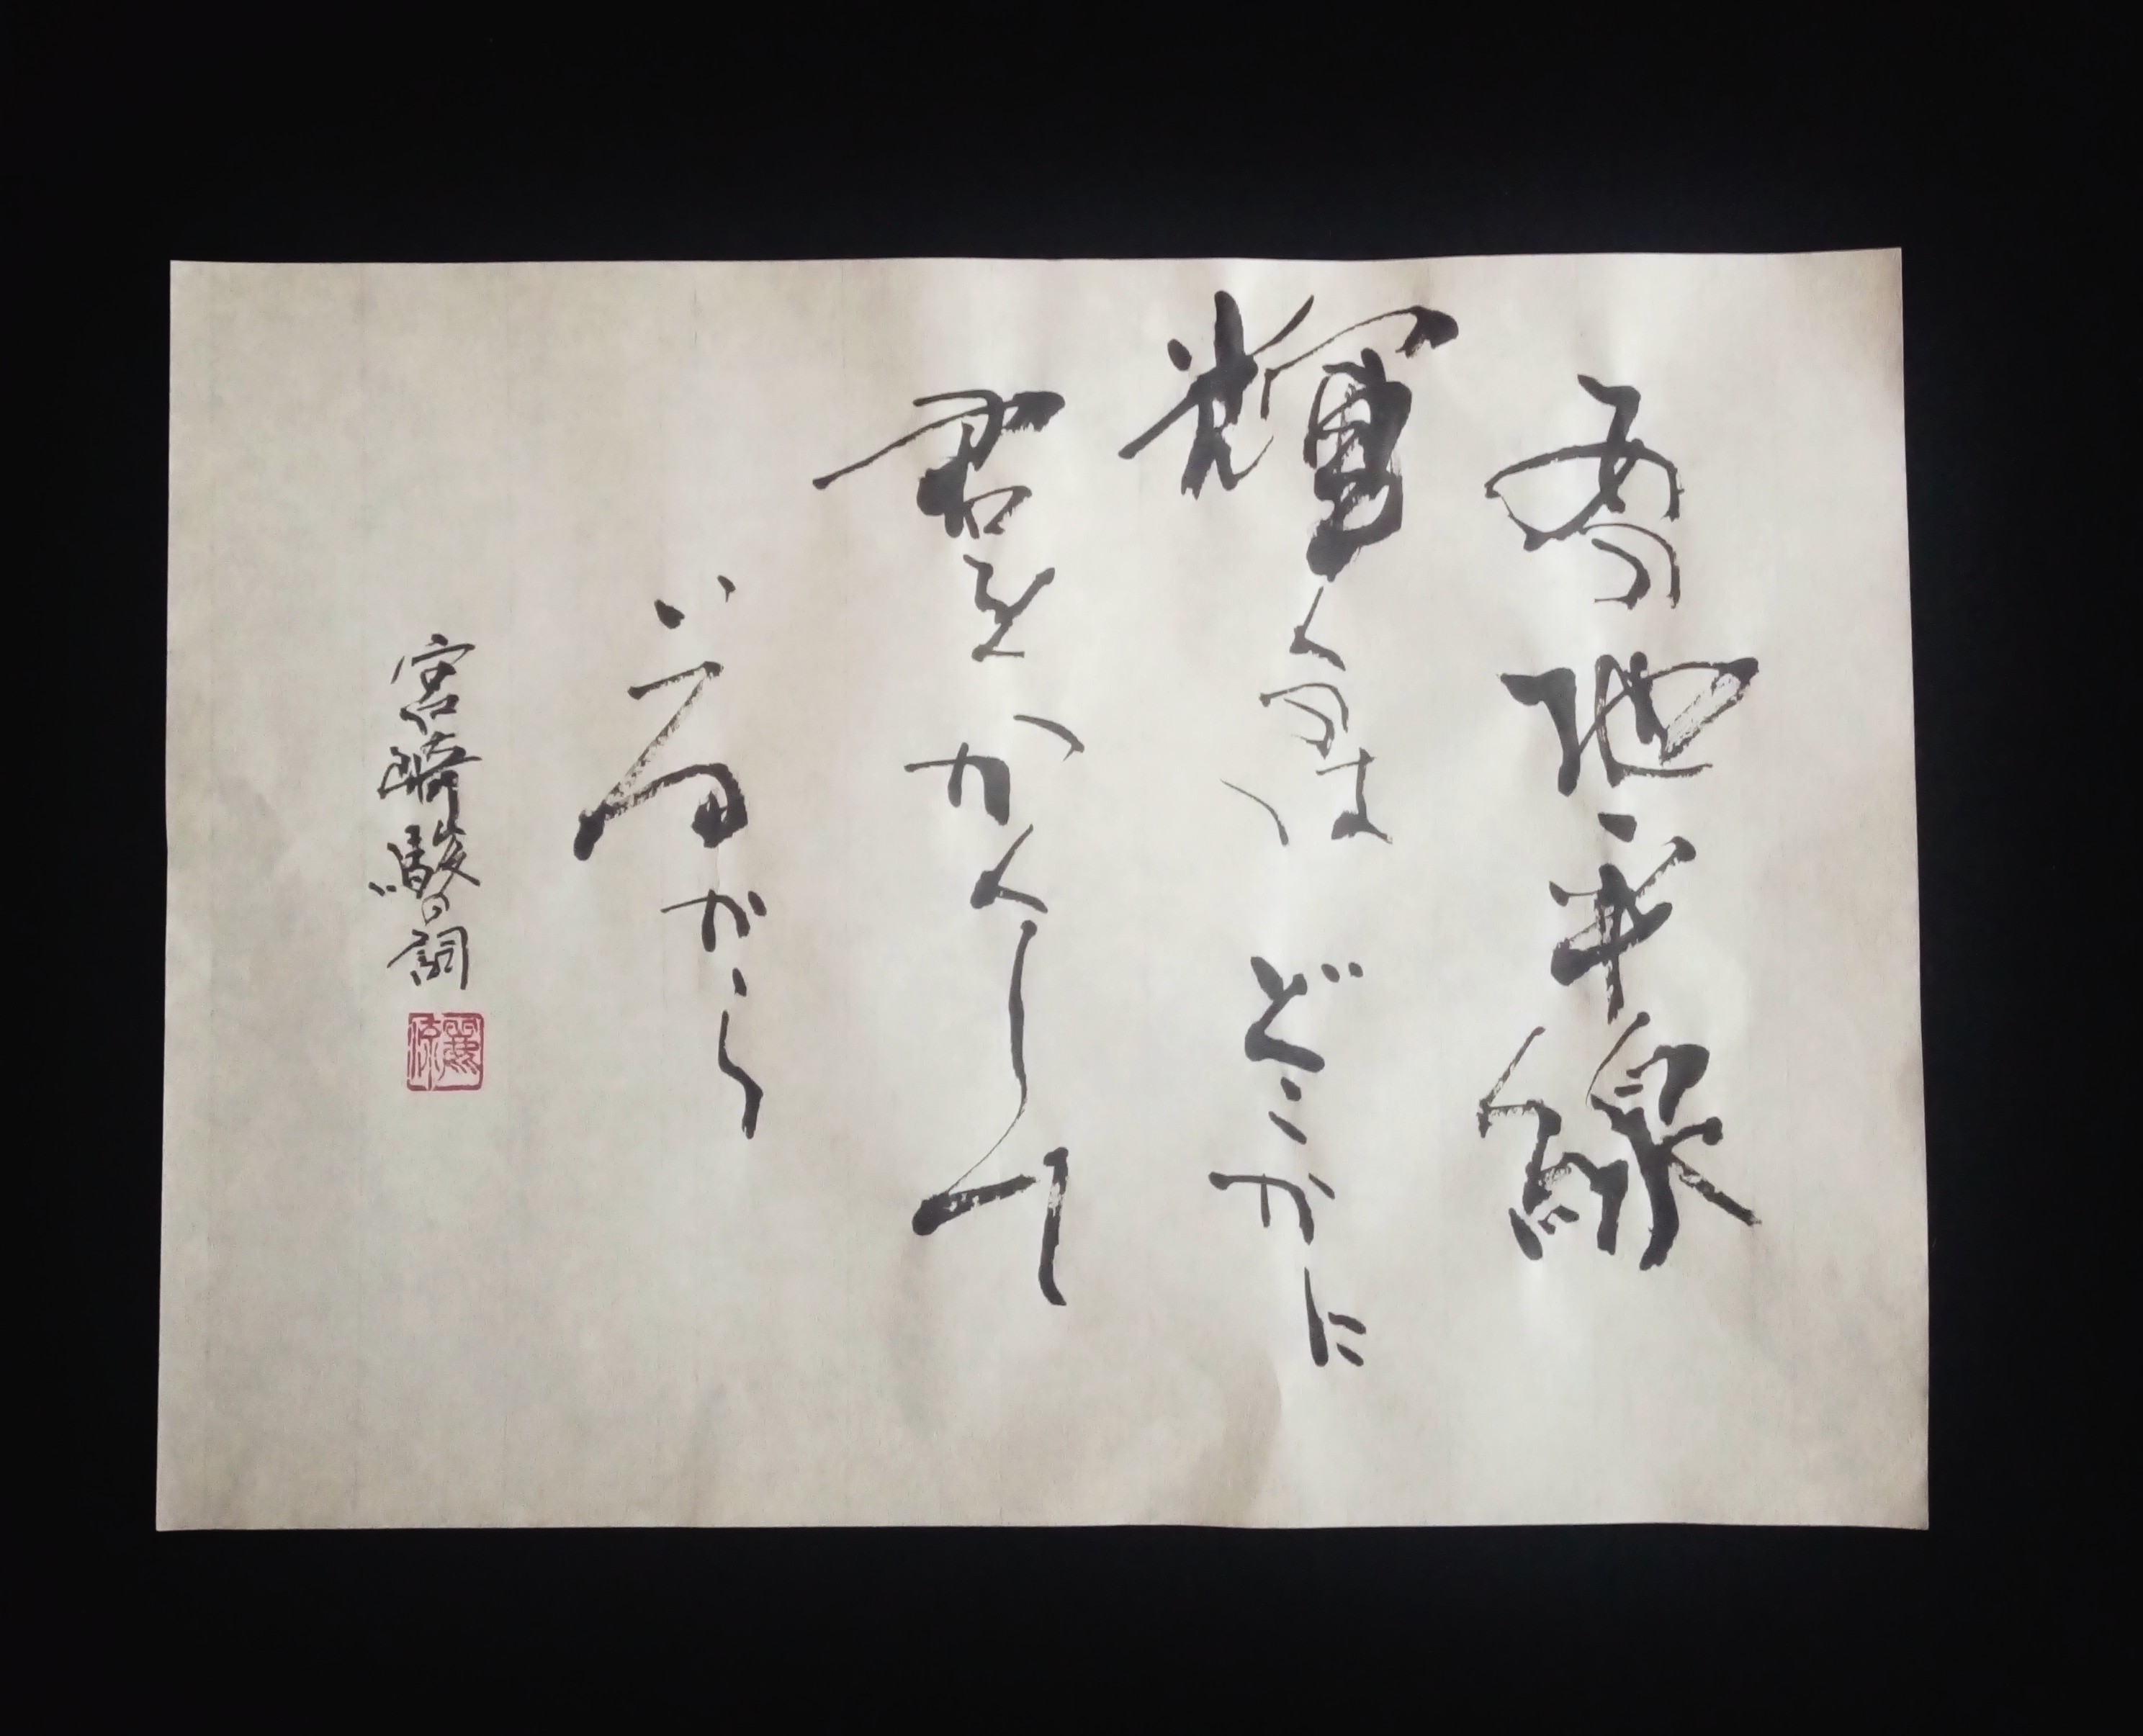 あの地平線
輝くのは どこかに
君をかくして
いるから
宮崎駿の詞